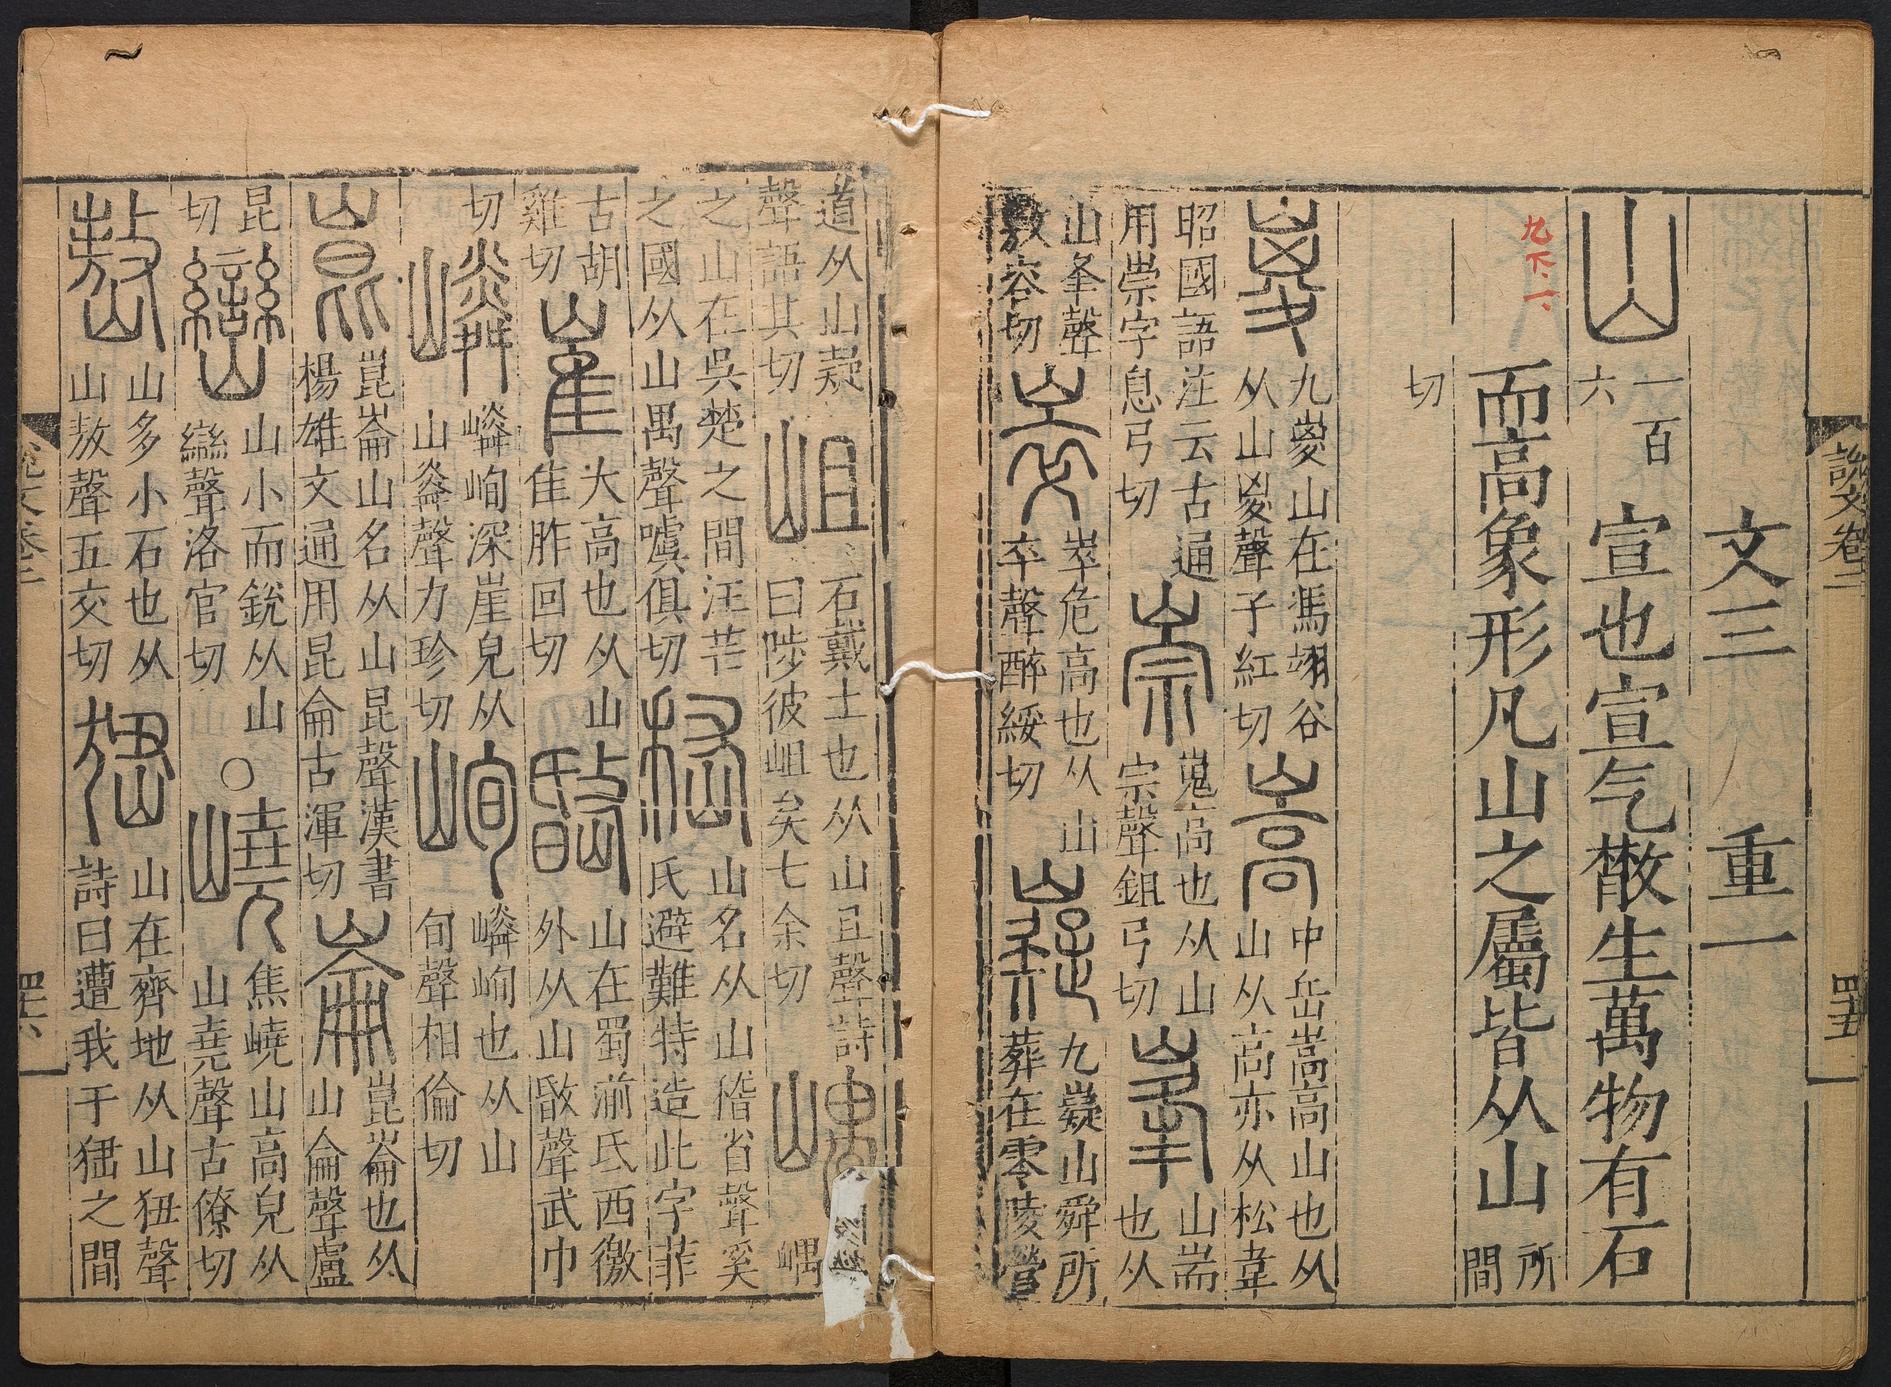 文三 重一
山 一百六 宣也宣气散生萬物有石
而高象形凡山之屬皆从山 所間
切
九下一
嵏 九嵏山在馮翊谷从山㚇聲子紅切 嵩 中岳嵩高山也从山从高亦从松韋
昭國語注云古通用崇字息弓切 崇 嵬高也从山宗聲鉏弓切 峯 山耑也从
山夆聲敷容切 崒 崒危高也从山卒聲醉綏切 嶷 九嶷山舜所葬在零陵營
道从山疑聲語其切 岨 石戴土也从山且聲詩曰陟彼岨矣七余切 嵎 嵎
之山在吳楚之間汪芒之國从山禺聲噳俱切 嵇 山名从山稽省聲奚氏避難特造此字非
古胡雞切 崔 大高也从山隹胙回切 山在蜀湔氐西徼外从山敃聲武巾
切 嶙 嶙峋深崖皃从山粦聲力珍切 峋 嶙峋也从山旬聲相倫切
崑 崑崙山名从山昆聲漢書楊雄文通用昆侖古渾切 崙 崑崙也从山侖聲盧
昆切 巒 山小而銳从山䜌聲洛官切 ○ 嶢 焦嶢山高皃从山堯聲古僚切
嶅 山多小石也从山敖聲五交切 峱 山在齊地从山狃聲詩曰遭我于峱之間
說文卷二
罒五
說文卷二
罒六